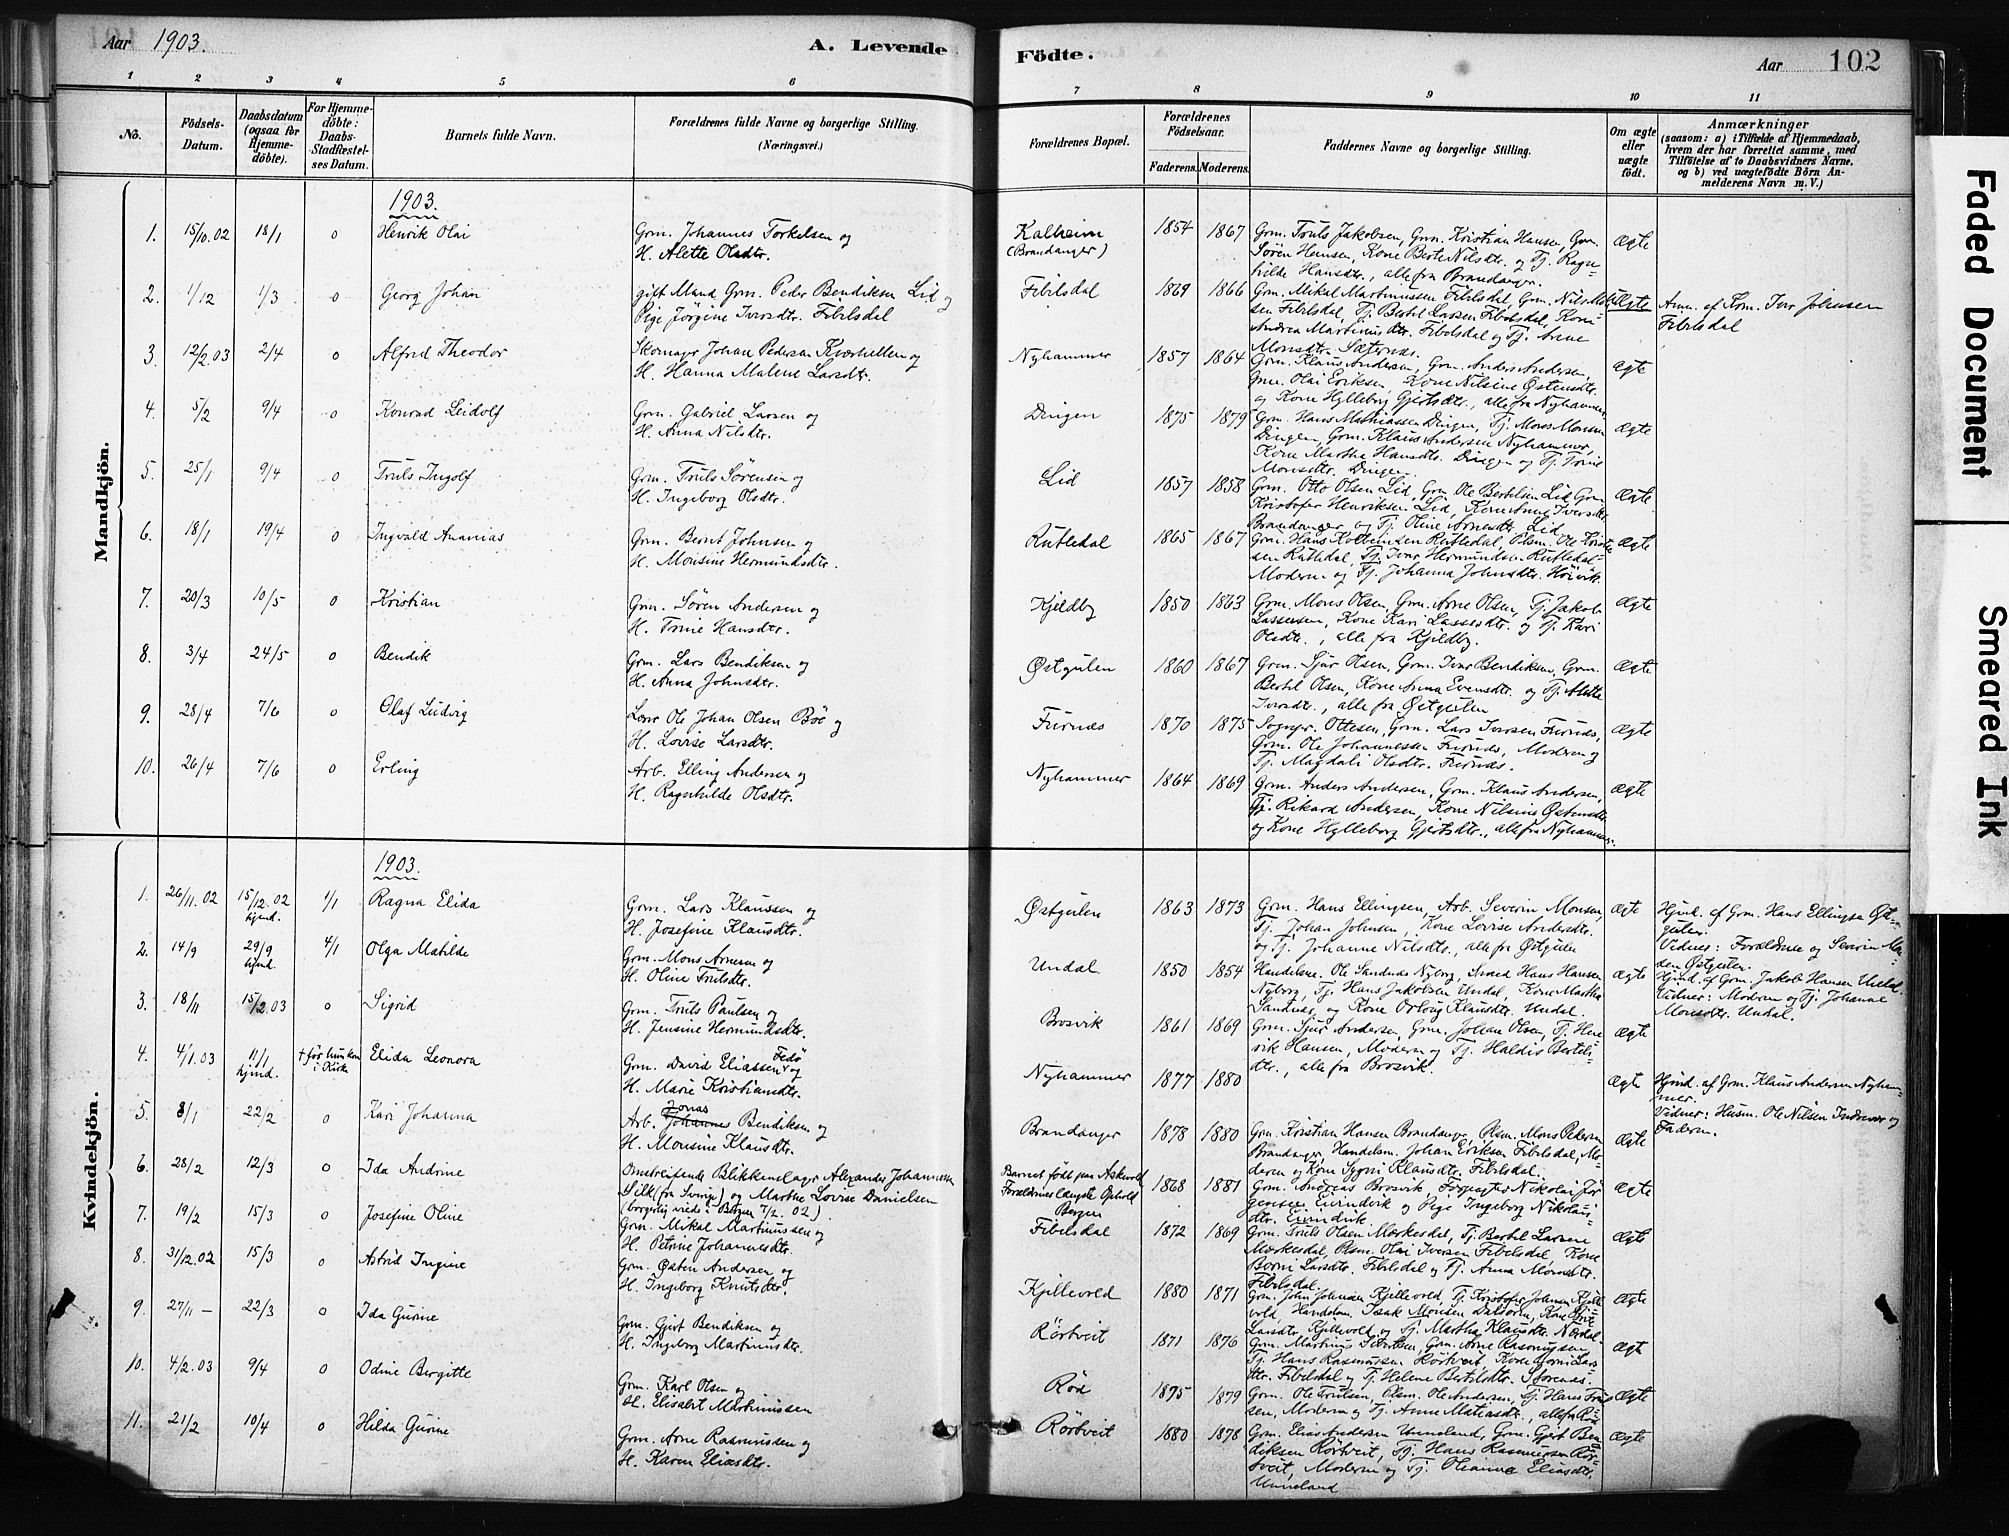 Aar 1903.
A. Levende
Födte.
Aar
102
1 2 3 4 5 6
7 8 9 10 11
No.
Födsels-
Datum.
Daabsdatum
(ogsaa for
Hjemme-
döbte).
For Hjemme-
döbte:
Daabs-
Stadfæstel-
ses Datum.
Barnets fulde Navn.
Forældrenes fulde Navne og borgerlige Stilling.
(Næringsvei.)
Forældrenes Bopæl.
Forældrenes
Födselsaar.
Faderens. Moderens.
Faddernes Navne og borgerlige Stilling.
Om ægte
eller
uægte
födt.
Anmærkninger
(saasom: a) i Tilfælde af Hjemmedaab,
hvem der har forrettet samme, med
Tilföielse af to Daabsvidners Navne,
og b) ved uægtefödte Börn An-
melderens Navn m. V.)
Mandkjön.
1903.
1. 15/10.02 18/1 0 Henrik Olai
Grm. Johannes Torkelsen og
H. Alette Olsdtr.
Kalheim
(Brandanger)
1854 1867
Grm. Truls Jakobsen, Grm. Kristian Hansen, Grm.
Sören Hansen, Kone Berte Nilsdtr. og Tj. Ragn-
hilde Hansdtr., alle fra Brandanger.
Ægte
2. 1/12 1/3 0 Georg Johan
gift Mand Grm. Peder Bendiksen Lid og
Pige Jörgine Iversdtr. Fibelsdal
Fibilsdal
1869 1866
Grm. Mikal Martinussen Fibelsdal, Grm. Nils
sen Fibilsdal, Tj. Bertel Larsen Fibelsdal, Kone
Andrea Martinusdtr. Fibelsdal og Tj. Anne
Monsdtr. Sæternes.
Uægte
Anm. af Grm. Ivar Johnsen
Fibilsdal
3. 12/2.03 2/4 0 Alfred Theodor
Skomager Johan Pedersen Kverhellen og
H. Hanna Malene Larsdtr.
Nyhammer
1857 1864
Grm. Klaus Andersen, Grm. Anders Andersen,
Grm. Olai Eriksen, Kone Nilsine Østensdtr.
og Kone Hylleborg Gjertsdtr., alle fra Nyhammer
Ægte
4. 5/2 9/4 0 Konrad Leidolf
Grm. Gabriel Larsen og
H. Anna Nilsdtr.
Dingen
1875 1879
Grm. Hans Mathiassen Dingen, Tj. Mons Monsen
Dingen, Grm. Klaus Andersen Nyhammer,
Kone Martha Hansdtr. Dingen og Tj. Trine
Monsdtr. Dingen
Ægte
5. 25/1 9/4 0 Truls Ingolf
Grm. Truls Sörensen og
H. Ingeborg Olsdtr.
Lid
1857 1858
Grm. Otto Olsen Lid, Grm Ole Bertelsen Lid, Grm
Kristofer Henriksen Lid, Kone Anne Iversdtr.
Brandanger og Tj. Oline Arnesdtr. Lid
Ægte
6. 18/1 19/4 0 Ingvald Ananias
Grm. Bernt Johnsen og
H. Monsine Hermundsdtr.
Rutledal
1865 1867
Grm. Hans Kolbeinsen Rutledal, Plsm. Ole Kristen-
sen Rutledal, Tj. Ivar Hermundsen Rutledal
Moderen og Tj. Johanna Johnsdtr. Höivik
Ægte
7. 20/3 10/5 0 Kristian
Grm. Sören Andersen og
H. Trine Hansdtr.
Kjeldby
1850 1863
Grm. Mons Olsen, Grm. Arne Olsen, Tj. Jakob
Lassesen, Kone Kari Lassesdtr. og Tj. Kari
Olsdtr., alle fra Kjeldby.
Ægte
8. 3/4 24/5 0 Bendik
Grm. Lars Bendiksen og
H. Anna Johnsdtr.
Østgulen
1860 1867
Grm. Sjur Olsen, Grm. Ivar Bendiksen, Grm.
Bertel Olsen, Kone Anna Evensdtr. og Tj. Alette
Iversdtr., alle fra Østgulen
Ægte
9. 28/4 7/6 0 Olaf Ludvig
Lærer Ole Johan Olsen Böe og
H. Lovise Larsdtr.
Furnes
1870 1875
Sognepr. Ottesen, Grm. Lars Ivarsen Furnes,
Grm. Ole Johannessen Furnes, Moderen og
Tj. Magdali Olsdtr. Furnes.
Ægte
10. 26/4 7/6 0 Erling
Arb. Elling Andersen og
H. Ragnhilde Olsdtr.
Nyhammer
1864 1869
Grm. Anders Andersen, Grm. Klaus Andersen,
Tj. Rikard Andersen, Kone Nilsine Østensdtr
og Kone Hylleborg Gjertsdtr., alle fra Nyhammer.
Ægte
Kvindekjön.
1903.
1. 26/11.02 15/12.02 hjmd. 1/1 Ragna Elida
Grm. Lars Klaussen og
H. Josefine Klausdtr.
Østgulen
1863 1873
Grm. Hans Ellingsen, Arb. Severin Monsen,
Tj. Johan Johnsen, Kone Lovise Andersdtr.
og Tj. Johanne Nilsdtr., alle fra Østgulen
Ægte
Hjmd. af Grm. Hans Ellingsen Øst-
gulen.
Vidner: Forældrene og Severin
Østgulen.
2. 14/9 29/9 hjmd. 4/1 Olga Matilde
Grm. Mons Arnesen og
H. Oline Trulsdtr.
Undal
1850 1854
Handelsm. Ole Sandnes Nyborg, Smed Hans Hansen
Nyborg, Tj. Hans Jakobsen Undal, Kone Martha
Sandnes, og Kone Orlaug Klausdtr. Undal.
Ægte
Hjmd. af Grm. Jakob Hansen Undal.
Vidner: Moderen og Tj. Johanne
Monsdtr. Undal.
3. 18/11 15/2.03 0 Sigrid
Grm. Truls Paulsen og
H. Jensine Hermundsdtr.
Brosvik
1861 1869
Grm. Sjur Andersen, Grm. Johan Olsen, Tj. Hen-
rik Hansen, Moderen og Tj. Haldis Bertels-
dtr., alle fra Brosvik.
Ægte
4. 4/1.03 11/1 hjmd. + før hun kom i Kirke Elida Leonora
Grm. David Eliassen Fedö og
H. Marie Kristiansdtr.
Nyhammer
1877 1880
Ægte
Hjmd. af Grm. Klaus Andersen Nyham-
mer.
Vidner: Husm. Ole Nilsen Indrevær og
Faderen.
5. 8/1 22/2 0 Kari Johanna
Arb. Johannes Jonas Bendiksen og
H. Monsine Klausdtr.
Brandanger
1878 1880
Grm. Kristian Hansen Brandanger, Plsm. Mons Pedersen
Brandanger, Handelsm. Johan Eriksen Fibilsdal, Mo-
deren og Kone Sygni Klausdtr. Fibilsdal.
Ægte
6. 28/2 12/3 0 Ida Andrine
Omstreifende Blikkenslager Alexander Johannessen
Silk (fra Sverige) og Marthe Lovise Danielsen
(borgerlig viede i Bergen 7/2.02).
Barnet födt paa Askevold
Forældrenes længste Ophold
Bergen
1868 1881
Grm. Andreas Brosvik, Nikolai Jör-
gensen Eivindvik og Pige Ingeborg Nikolai-
dtr. Eivindvik
Ægte
7. 19/2 15/3 0 Josefine Oline
Grm. Mikal Martinussen og
H. Petrine Johannesdtr.
Fibelsdal
1872 1869
Grm. Truls Olsen Mærkesdal, Tj. Bertel Larsen
Mærkesdal, Plsm. Olai Iversen Fibelsdal, Kone
Borni Larsdtr. Fibelsdal og Tj. Anna Monsdtr.
Fibelsdal.
Ægte
8. 31/12.02 15/3 0 Astrid Ingine
Grm. Østen Andersen og
H. Ingeborg Knutsdtr.
Kjillevold
1880 1871
Grm. John Johnsen Kjillevold, Tj. Kristofer Johnsen Kjille-
vold, Handelsm. Isak Monsen Dalsören, Kone
Larsdtr. Kjillevold og Tj. Martha Klausdtr. Nordal
Ægte
9. 27/11 – 22/3 0 Ida Gurine
Grm. Gjert Bendiksen og
H. Ingeborg Martinusdtr.
Rörtveit
1871 1876
Grm. Martinus Sivertsen, Grm. Arne Rasmussen
Tj. Hans Rasmussen Rörtveit, Kone Borni Lars-
dtr. Fibilsdal og Tj. Helene Bertelsdtr.
Ægt
10. 4/2.03 9/4 0 Odine Bergitte
Grm. Karl Olsen og
H. Elisabet Martinussen
Röd
1875 1879
Grm. Ole Trulsen, Plsm. Ole Andersen, Tj. Hans Trul-
sen, Moderen og Tj. Anne Matiasdtr., alle fra Röd
Ægte
11. 21/2 10/4 0 Hilda Gurine
Grm. Arne Rasmussen og
H. Karen Eliasdtr.
Rörtveit
1880 1878
Grm. Elias Andersen Unneland, Grm. Gjert Ben-
diksen Rörtveit, Tj. Hans Rasmussen Rör-
tveit, Moderen og Tj. Olianna Eliasdtr.
Unneland
Ægte
Faded Document
Smeared Ink